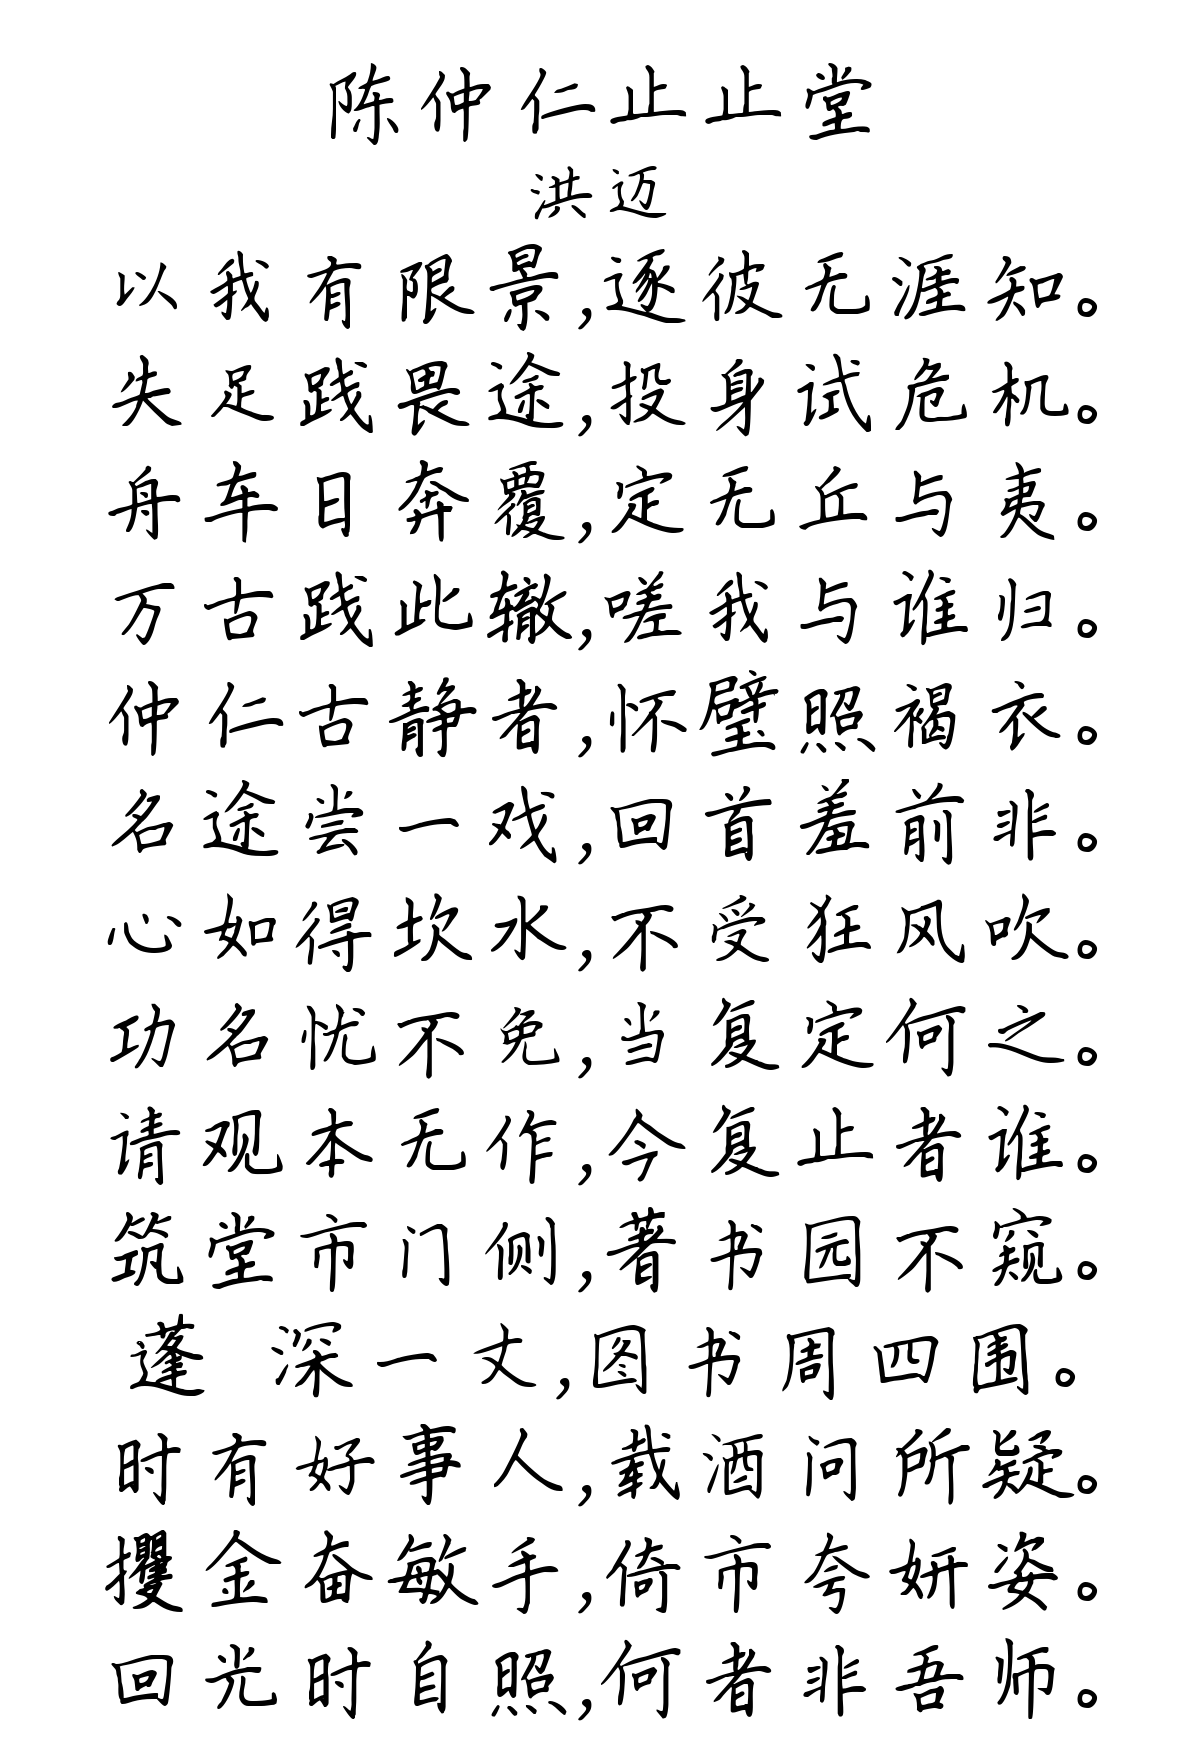 陈仲仁止止堂
洪迈
以我有限景,逐彼无涯知。
失足践畏途,投身试危机。
舟车日奔覆,定无丘与夷。
万古践此辙,嗟我与谁归。
仲仁古静者,怀璧照褐衣。
名途尝一戏,回首羞前非。
心如得坎水,不受狂风吹。
功名忧不免,当复定何之。
请观本无作,今复止者谁。
筑堂市门侧,著书园不窥。
蓬 深一丈,图书周四围。
时有好事人,载酒问所疑。
攫金奋敏手,倚市夸妍姿。
回光时自照,何者非吾师。